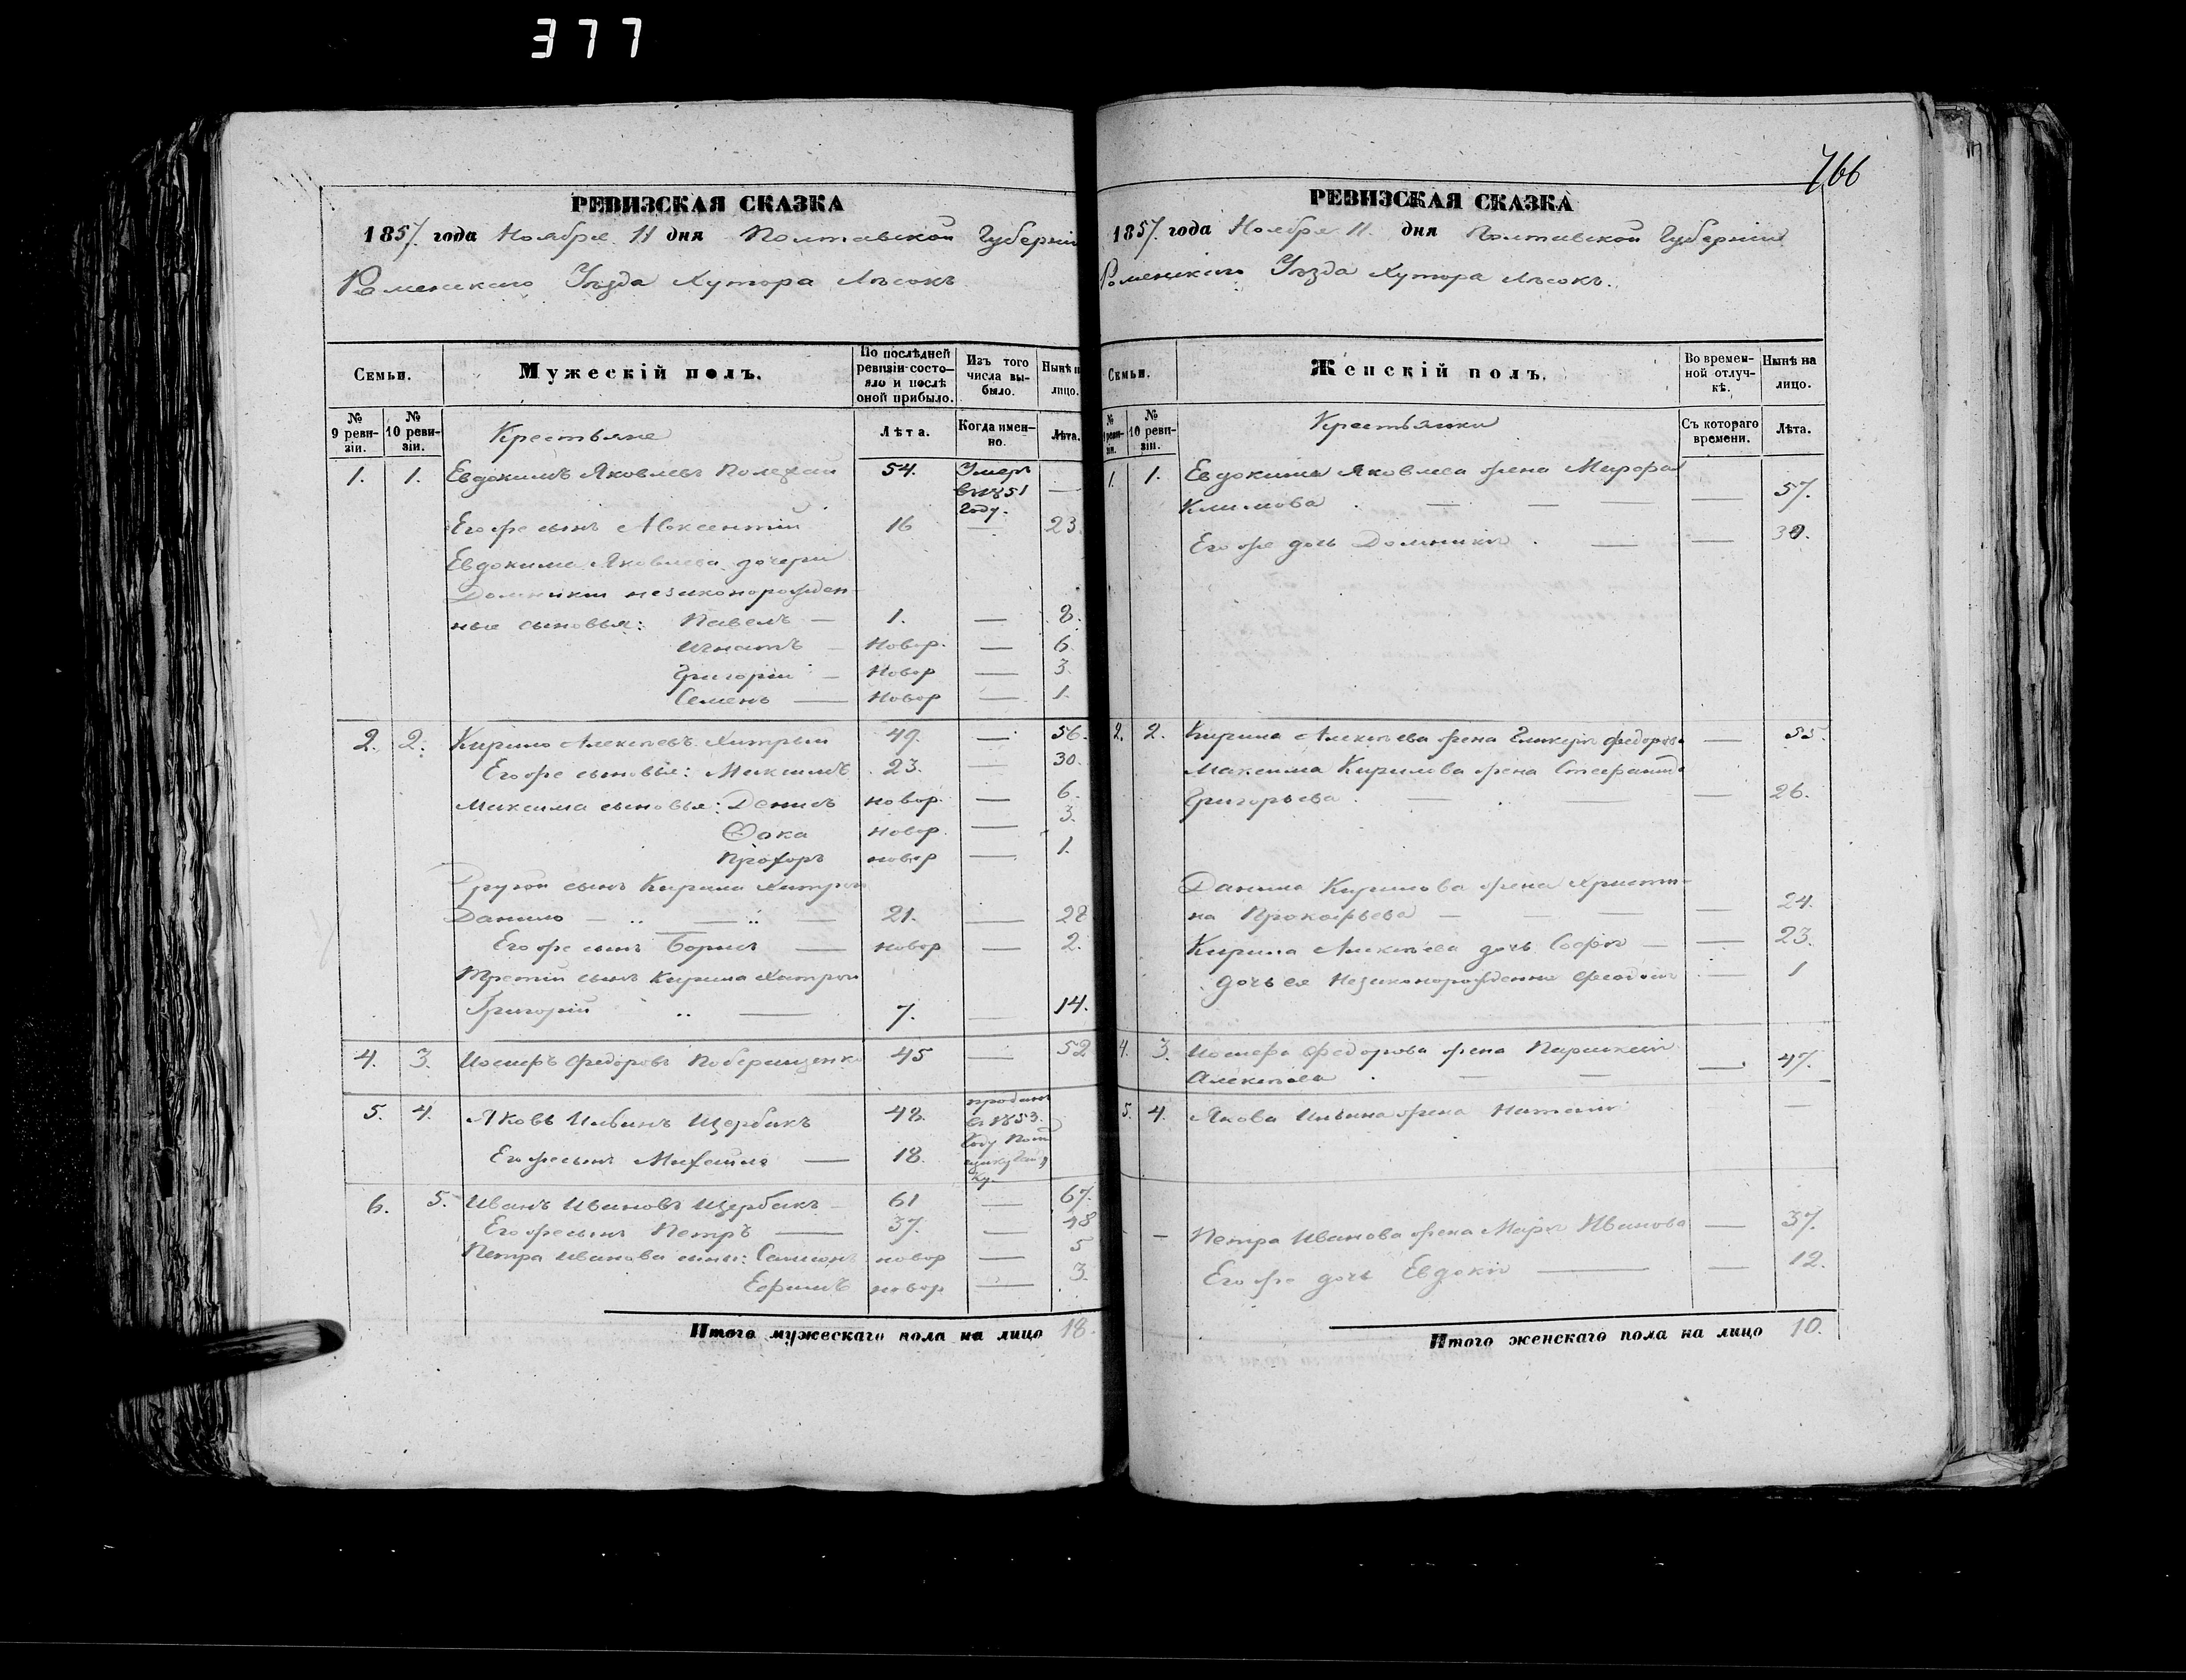 377
766
РЕВИЗСКАЯ СКАЗКА
1857. года Ноября 11 дня Полтавской Губерніи
Роменскаго Уѣзда Хутора Лѣсокъ
Семьи.
Мужескій полъ.
По послѣдней ревизіи состояло и послѣ оной прибыло.
Изъ того числа выбыло.
Нынѣ на лицо.
№ 9 ревизіи.
№ 10 ревизіи.
Крестьяне
Лѣта.
Когда именно.
Лѣта.
1. 1. Евдокимъ Яковлевъ 54. Умеръ —
въ 1851
году.
Егоже сынъ Авксентій 16 — 23.
Евдокима Яковлева дочери
Домникіи незаконорожден-
ные сыновья: Павелъ — 1. — 8.
Игнатъ — Новор. — 6
Григорій — Новор — 3.
Семенъ — Новор — 1.
2. 2. Кирило Алексѣевъ Хитрый 49. — 56.
Егоже сыновья: Максимъ 23. — 30.
Максима сыновья: Денисъ новор. — 6.
Фока новор. — 3.
Прохоръ новор — 1.
Другой сынъ Кирила
Данило — .. — .. — 21. — 28
Егоже сынъ Борисъ — новор — 2.
Третій сынъ Кирила
Григорій .. — 7. — 14.
4. 3. Иосифъ Федоровъ Поберащенко 45 — 52
5. 4. Яковъ Ильинъ Щербакъ 48. проданъ
въ 1853.
Году
Егоже сынъ Михайло — 18.
6. 5. Иванъ Ивановъ Щербакъ — 61 — 67.
Егоже сынъ Петръ — 37. — 48
Петра Иванова сыны: Самсонъ новор — 5
Ефимъ новор — 3.
Итого мужескаго пола на лицо 18.
РЕВИЗСКАЯ СКАЗКА
1857. года Ноября 11. дня Полтавской Губерніи
Роменскаго Уѣзда Хутора Лѣсокъ.
Семьи.
Женскій полъ.
Во временной отлучкѣ.
Нынѣ на лицо.
№ 9 ревизіи.
№ 10 ревизіи.
Крестьянки
Съ котораго времени.
Лѣта.
1. 1. Евдокима Яковлева жена Марфа
Климова . — — — 57.
Егоже дочь Домникія . — — 30.
2. 2. Кирила Алексѣева жена Гликерія Федорова — 55.
Максима Кирилова жена Стефанида
Григорьева . — .. — 26.
Данила Кирилова жена Христи-
на Прокофьева — — 24.
Кирила Алексѣева дочь Софія — — 23.
дочь ея Незаконорожденна — 1
4. 3. Иосифа Федорова жена Параскевія
Алексѣева . — — — 47.
5. 4. Якова Ильина жена Наталія —
— Петра Иванова жена Марія Иванова — 37.
Егоже дочь Евдокія — — 12.
Итого женскаго пола на лицо 10.